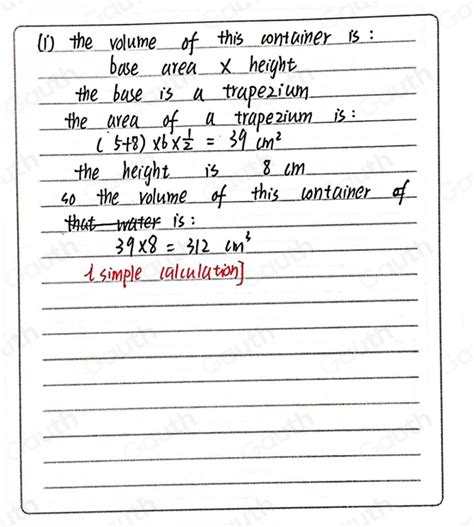 (i) the volume of this container is:
base area x height
the base is a trapezium
the area of a trapezium is:
(5+8) x6x½ = 39 cm²
the height is 8 cm
so the volume of this container of
that water is:
39x8 = 312 cm³
[simple calculation]